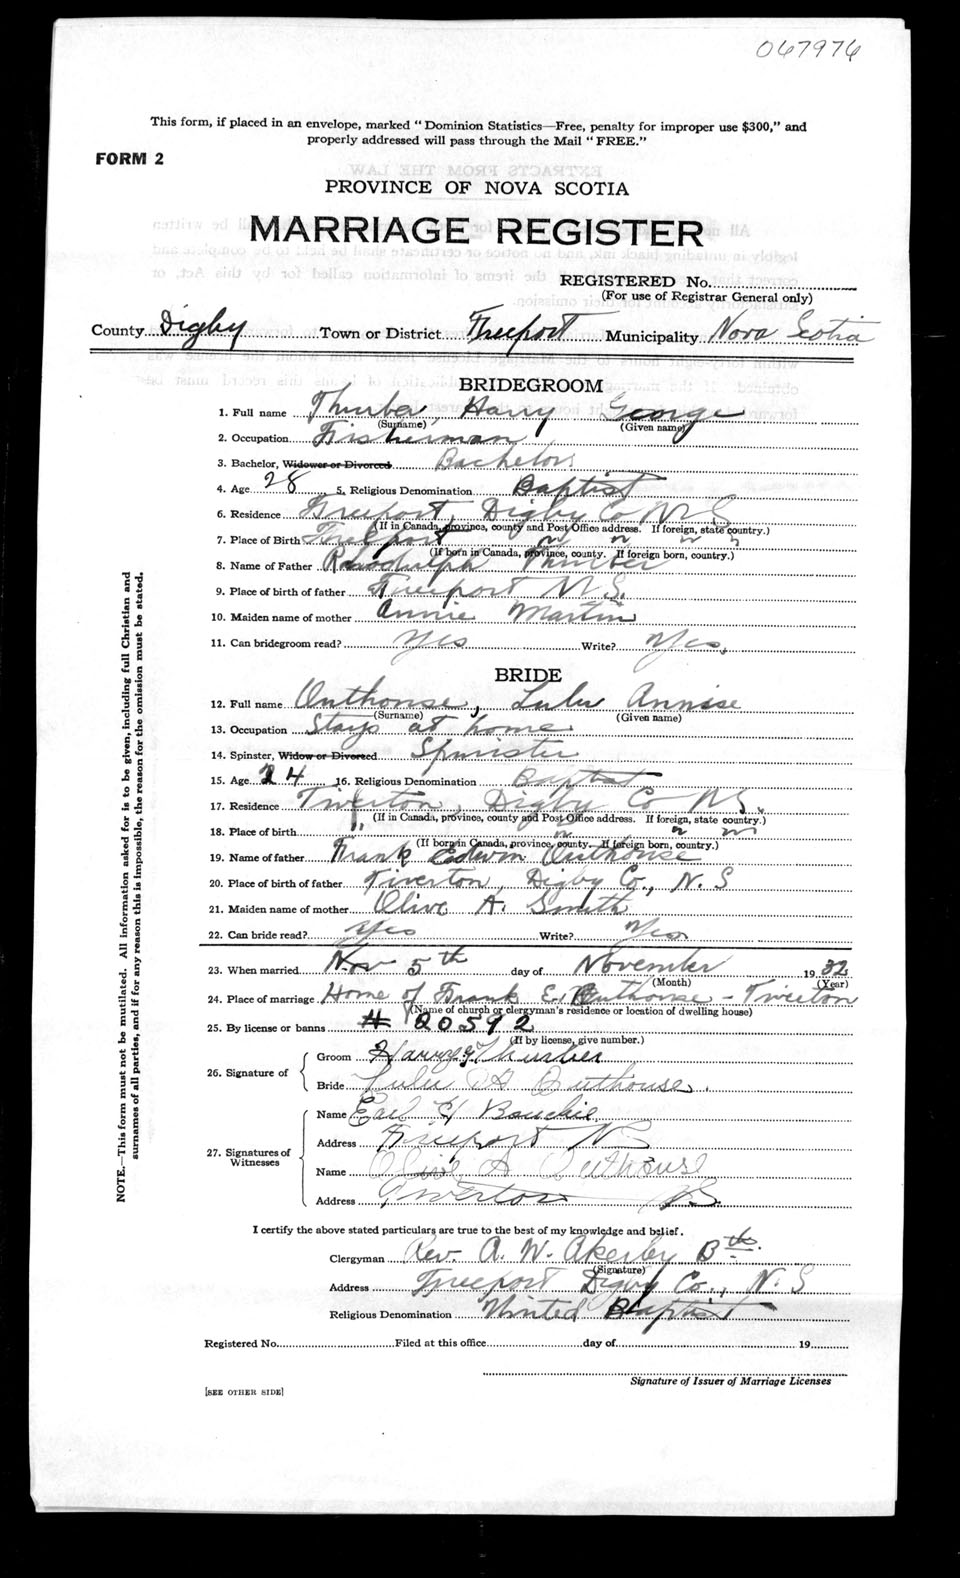 067976
This form, if placed in an envelope, marked "Dominion Statistics—Free, penalty for improper use $300," and
properly addressed will pass through the Mail "FREE."
FORM 2
PROVINCE OF NOVA SCOTIA
MARRIAGE REGISTER
REGISTERED No.
(For use of Registrar General only)
County Digby Town or District Freeport Municipality Nova Scotia
BRIDEGROOM
1. Full name Thurber, Harry George
(Surname) (Given name)
2. Occupation Fisherman
3. Bachelor, Widower or Divorced Bachelor
4. Age 28 5. Religious Denomination Baptist
6. Residence Freeport, Digby Co N.S
(If in Canada, province, county and Post Office address. If foreign, state country.)
7. Place of Birth Freeport " " " "
(If born in Canada, province, county. If foreign born, country.)
8. Name of Father Thurber
9. Place of birth of father Freeport N.S.
10. Maiden name of mother Annie Martin
11. Can bridegroom read? yes Write? Yes,
BRIDE
12. Full name Outhouse, Lulu Annise
(Surname) (Given name)
13. Occupation Stays at home
14. Spinster, Widow or Divorced Spinister
15. Age 24 16. Religious Denomination Baptist
17. Residence Tiverton, Digby Co N.S.
(If in Canada, province, county and Post Office address. If foreign, state country.)
18. Place of birth " " " "
(If born in Canada, province, county. If foreign born, country.)
19. Name of father Frank Edwin Outhouse
20. Place of birth of father Tiverton, Digby Co., N.S
21. Maiden name of mother Olive A. Smith
22. Can bride read? Yes Write? Yes
23. When married Nov 5th day of November 1932
(Month) (Year)
24. Place of marriage Home of Frank E. Outhouse - Tiverton
(Name of church or clergyman's residence or location of dwelling house)
25. By license or banns # 20592
(If by license, give number.)
26. Signature of
Groom Harry G Thurber
Bride Lulu A Outhouse.
27. Signatures of Witnesses
Name Earl H
Address Freeport NS
Name Olive A Outhouse
Address Tiverton NS.
I certify the above stated particulars are true to the best of my knowledge and belief.
Clergyman Rev. A. W. Akerley Bth.
(Signature)
Address Freeport Digby Co., N.S
Religious Denomination United Baptist
Registered No. Filed at this office day of 19
Signature of Issuer of Marriage Licenses
[SEE OTHER SIDE]
NOTE.—This form must not be mutilated. All information asked for is to be given, including full Christian and
surnames of all parties, and if for any reason this is impossible, the reason for the omission must be stated.